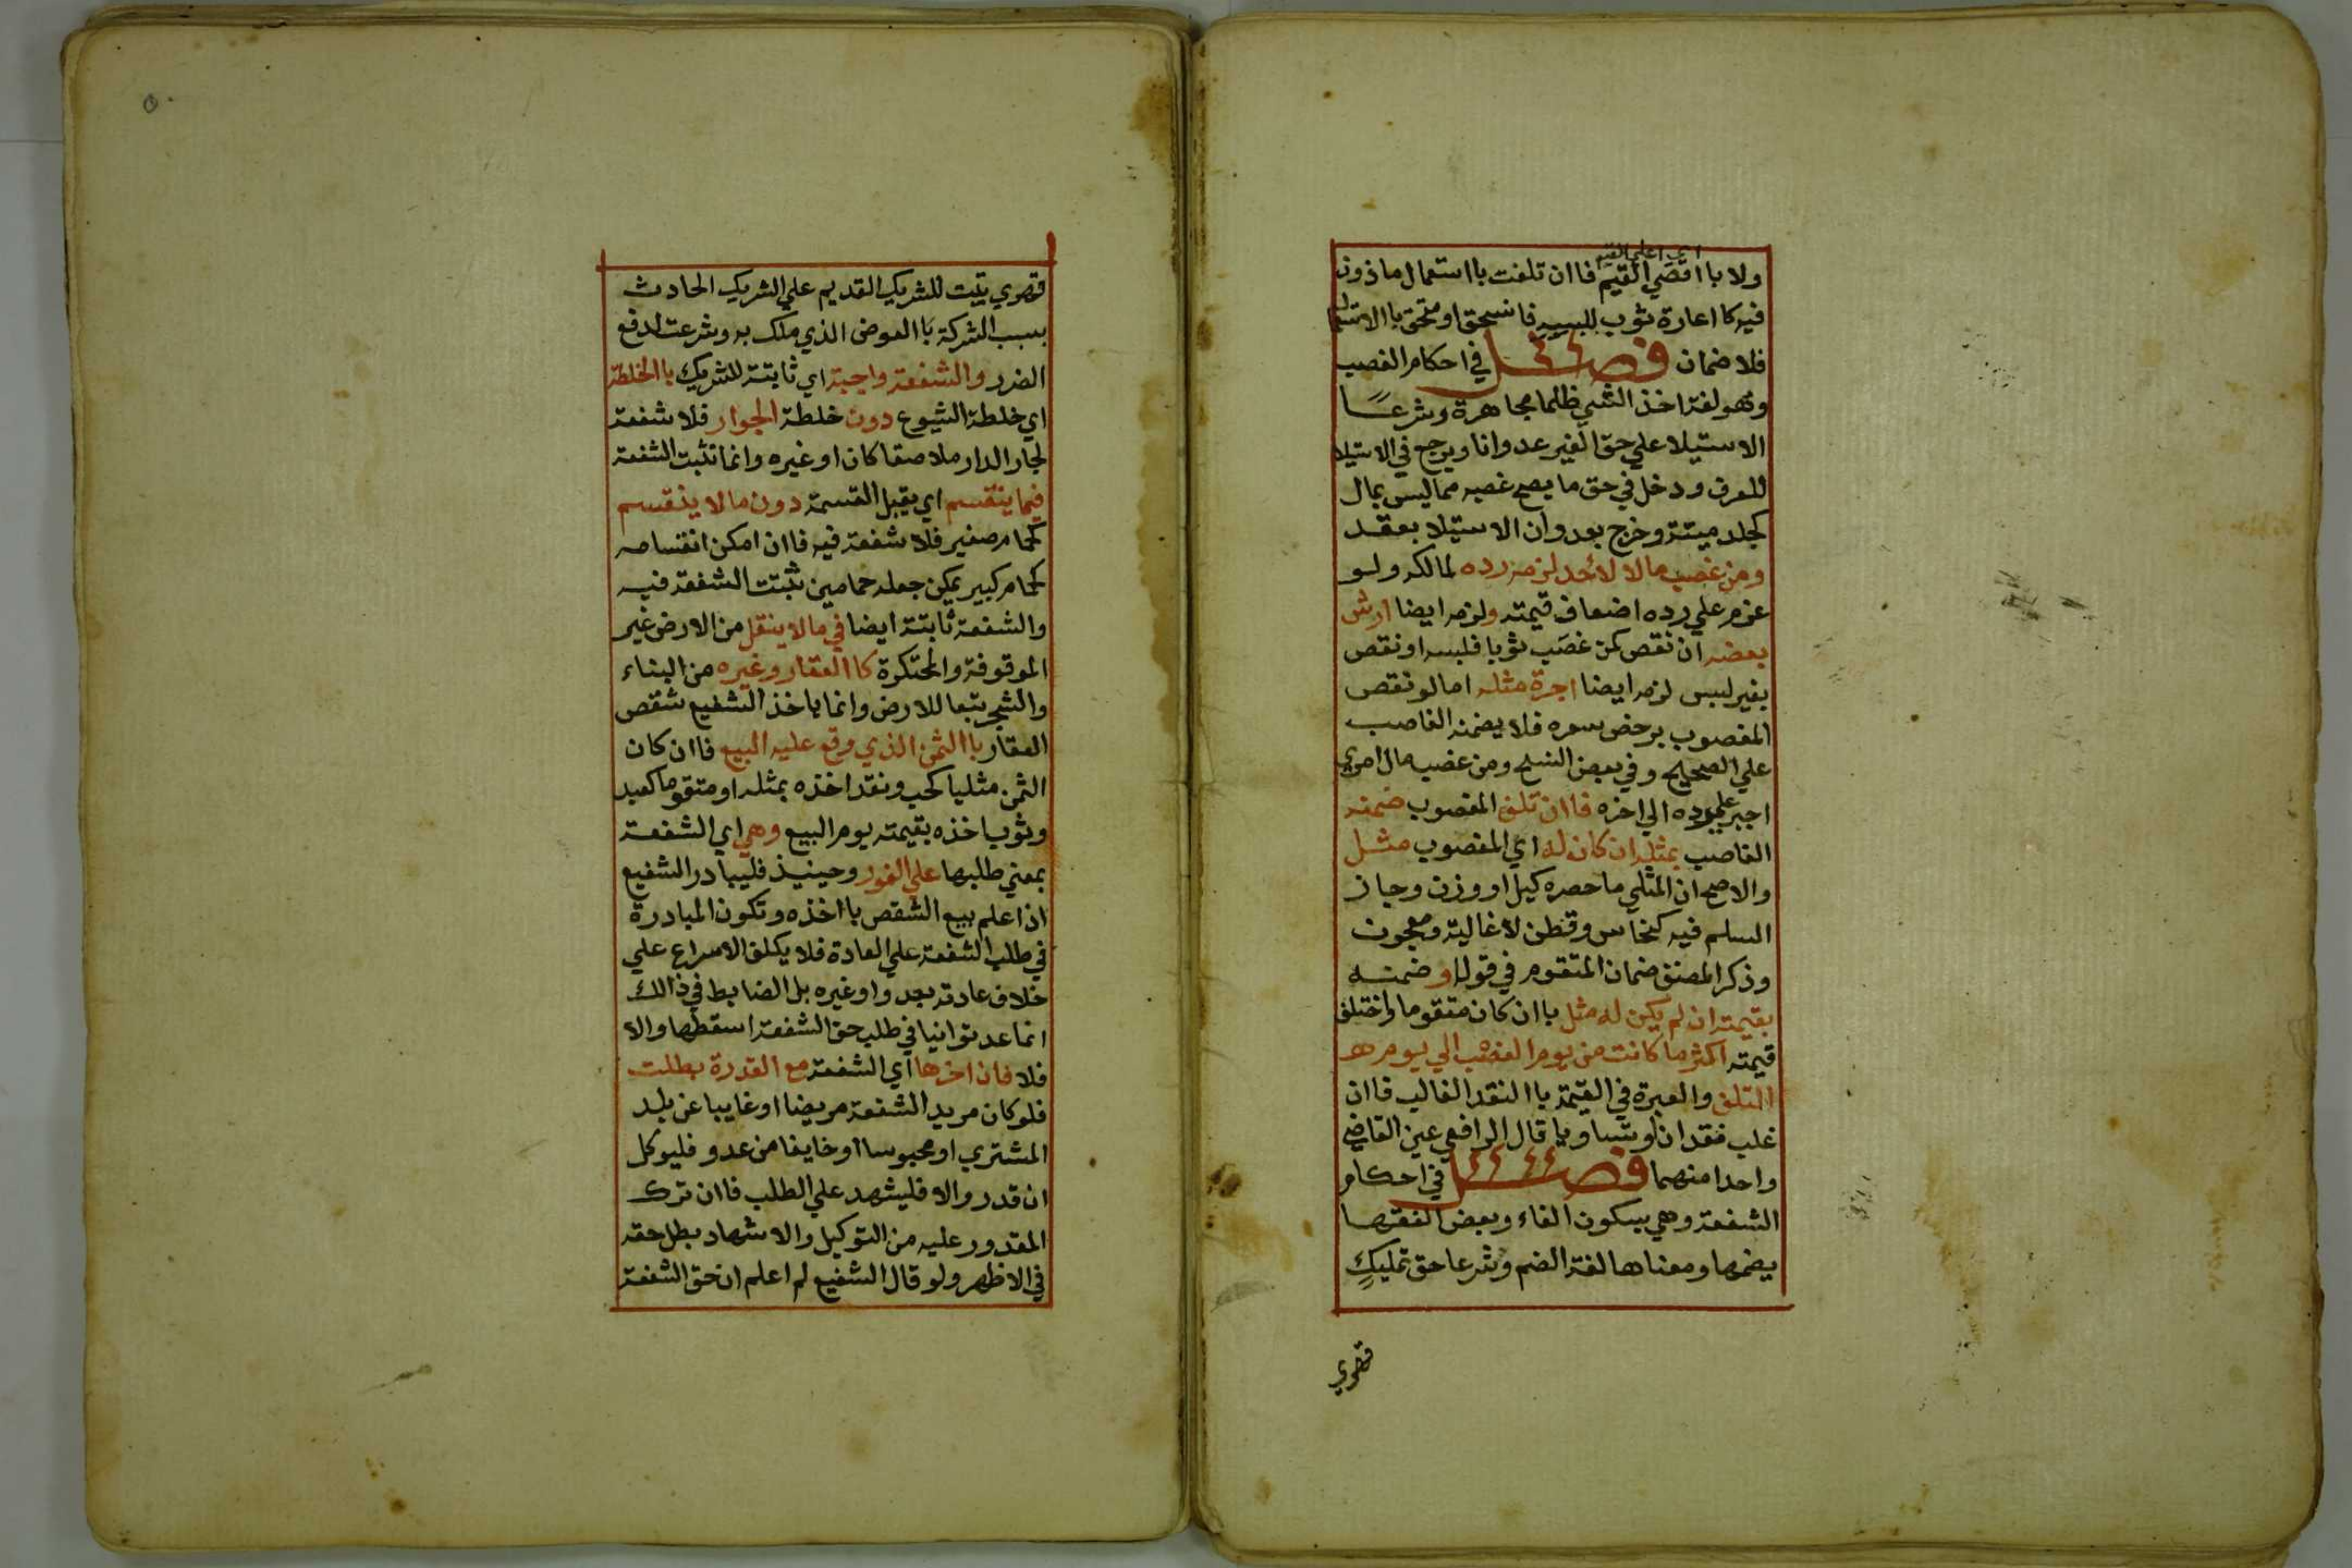 اي اعلي القيم
ولا باا قصي القيم فاان تلفت باا ستعمال ماذون
فيه كا اعارة ثوب للبسه فانسحق او متحق باالاستعمال
فلا ضمان فصل في احكام الغصب
وهو لغة اخذ الشي ظلما مجاهرة وشرعًا
الاستيلا علي حق الغير عدوانا ويرجع في الاستيلا
للعرف ودخل في حق ما يصح غصبه مما ليس بمال
كجلد ميتة وخرج بعدوان الاستيلا بعقد
ومن غصب مالا لاحد لزمه رده لمالكه ولو
غرم علي رده اضعاف قيمته ولزمه ايضا ارش
بعضه ان نقص كمن غصب ثوبا فلبسه او نقص
بغير لبس لزمه ايضا اجرة مثله اما لو نقص
المغصوب برخص سعره فلا يضمنه الغاصب
علي الصحيح وفي بعض النسخ ومن غصب مال امري
اجبر علي رده الي اخره فاان تلف المغصوب ضمنه
الغاصب بمثله ان كان له اي المغصوب مثل
والاصح ان المثلي ما حصره كيل او وزن وجاز
السلم فيه كنحاس وقطن لاغالية ومعجون
وذكر المصنف ضمان المتقوم في قوله او ضمنه
بقيمته ان لم يكن له مثل باان كان متقوما واختلف
قيمته اكثر ما كانت من يوم الغصب الي يوم
التلف والعبرة في القيمة باالنقد الغالب فاان
غلب نقدان وتساويا قال الرافعي عين القاضي
واحدا منهما فصل في احكام
الشفعة وهي بسكون الفاء وبعض الفقها
يضمها ومعناها لغة الضم وشرعا حق تمليك
قهري
قهري يثبت للشريك القديم علي الشريك الحادث
بسبب الشركة باالعوض الذي ملك به وشرعت لدفع
الضرر والشفعة واجبة اي ثابتة للشريك باالخلطة
اي خلطة الشيوع دون خلطة الجوار فلا شفعة
لجار الدار ملاصقا كان او غيره وانما تثبت الشفعة
فيما ينقسم اي يقبل القسمة دون مالا ينقسم
كحمام صغير فلا شفعة فيه فاان امكن انقسامه
كحمام كبير يمكن جعله حمامين ثبتت الشفعة فيه
والشفعة ثابتة ايضا في مالا ينقل من الارض غير
الموقوفة والمحتكرة كاالعقار وغيره من البناء
والشجر تبعا للارض وانما ياخذ الشفيع شقص
العقار باالثمن الذي وقع عليه البيع فاان كان
الثمن مثليا كحب ونقد اخذه بمثله او متقوما كعبد
وثوب اخذه بقيمته يوم البيع وهي اي الشفعة
بمعني طلبها علي الفور وحينيذ فليبادر الشفيع
اذا علم بيع الشقص باا خذه وتكون المبادرة
في طلب الشفعة علي العادة فلا يكلف الاسراع علي
خلاف عادته بعدو او غيره بل الضابط في ذالك
انما عد توانيا في طلب حق الشفعة اسقطها والا
فلا فان اخرها اي الشفعة مع القدرة بطلت
فلو كان مريد الشفعة مريضا او غايبا عن بلد
المشتري او محبوسا او خايفا من عدو فليوكل
ان قدر والا فليشهد علي الطلب فاان ترك
المقدور عليه من التوكيل والاشهاد بطل حقه
في الاظهر ولو قال الشفيع لم اعلم ان حق الشفعة